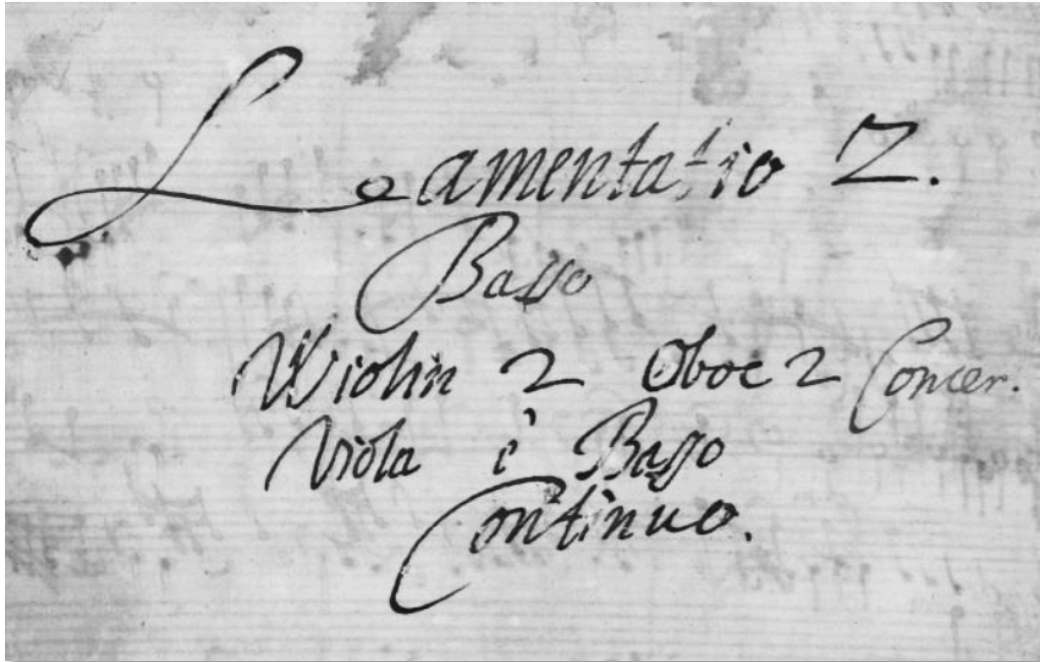 Lamentatio 2.
Basso
Violin 2 Oboe 2 Concer.
Viola è Basso
Continuo.